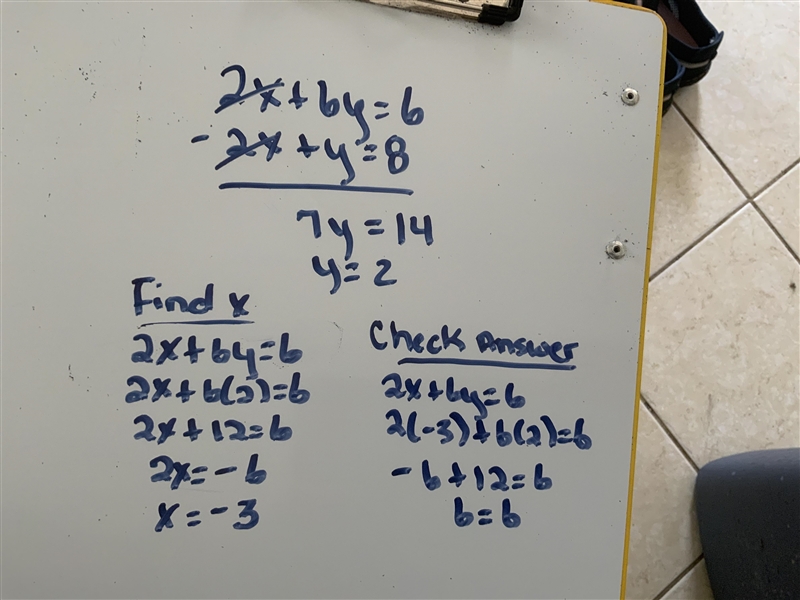 2x + 6y = 6
- 2x + y = 8
7y = 14
y = 2
Find x
2x + 6y = 6
2x + 6(2) = 6
2x + 12 = 6
2x = -6
x = -3
Check Answer
2x + 6y = 6
2(-3) + 6(2) = 6
-6 + 12 = 6
6 = 6